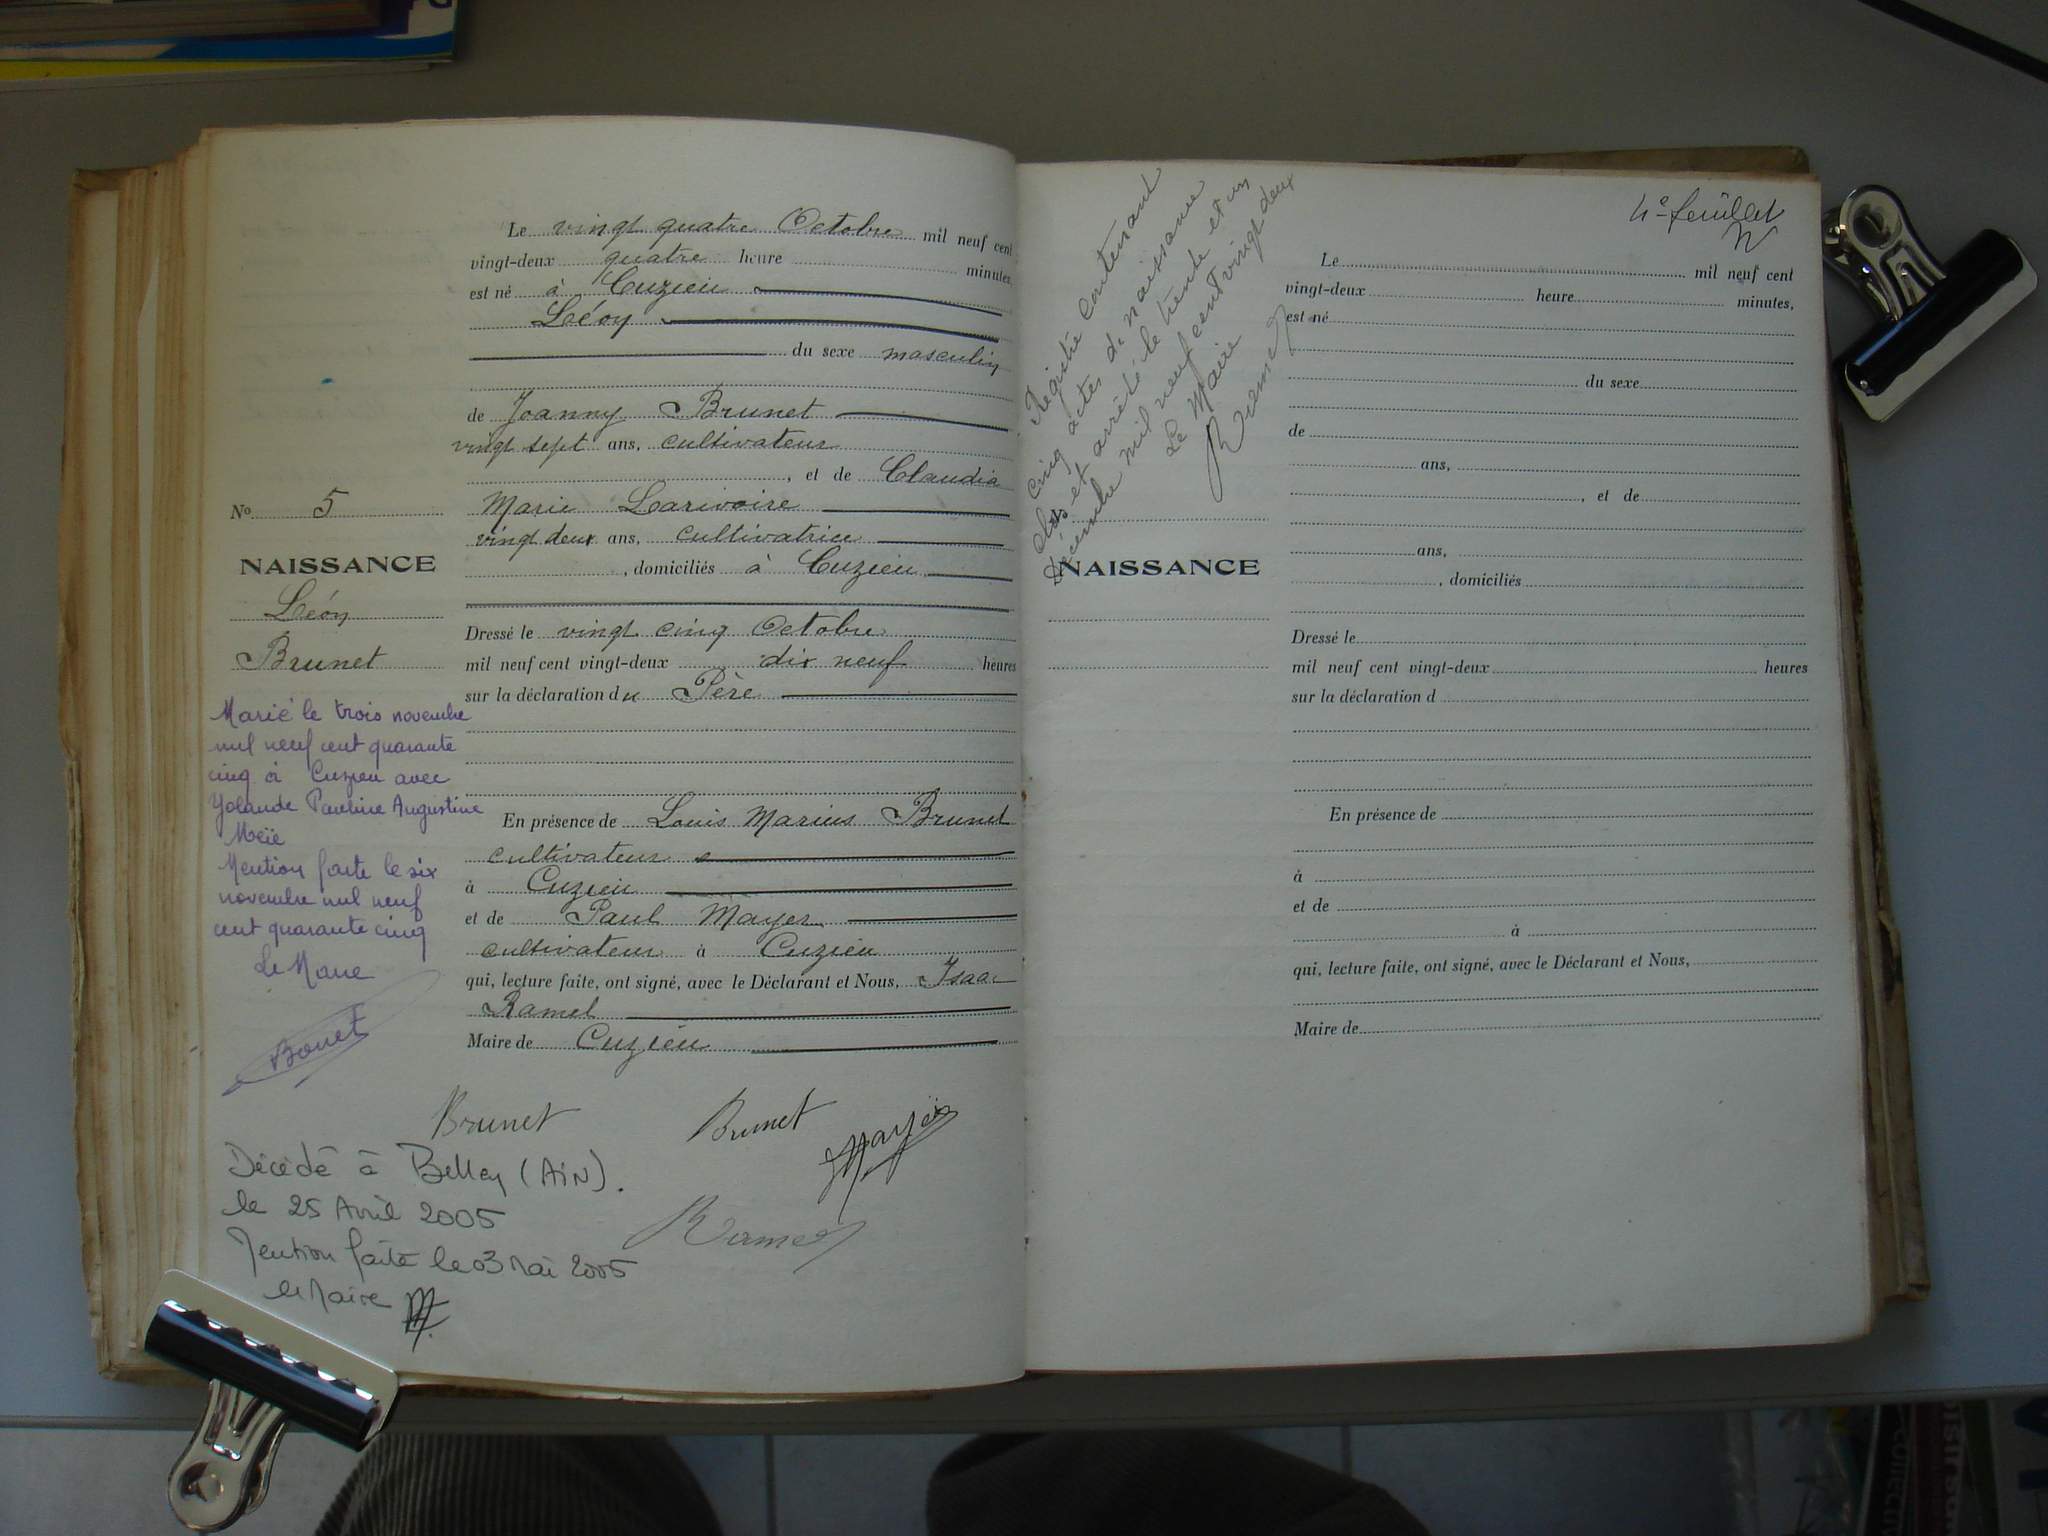 Le vingt quatre Octobre mil neuf cent
vingt-deux quatre heure minutes,
est né à Cuzieu
Léon
du sexe masculin
de Joanny Brunet
vingt sept ans, cultivateur
, et de Claudia
Marie Larivoire
vingt deux ans, cultivatrice
, domiciliés à Cuzieu
Dressé le vingt cinq Octobre
mil neuf cent vingt-deux dix neuf heures
sur la déclaration du Père
En présence de Louis Marius Brunet
cultivateur
à Cuzieu
et de Paul Mayer
cultivateur à Cuzieu
qui, lecture faite, ont signé, avec le Déclarant et Nous, Isaac
Ramel
Maire de Cuzieu
No 5
NAISSANCE
Léon
Brunet
Marié le trois novembre
mil neuf cent quarante
cinq à Cuzieu avec
Yolande Pauline Augustine
Meïe
Mention faite le six
novembre mil neuf
cent quarante cinq
Le Maire
Bonet
Brunet
Brunet
Ramel
Décédé à Belley (AIN).
le 25 Avril 2005
Mention faite le 03 Mai 2005
le Maire
Registre contenant
cinq actes de naissance
clos et arrêté le trente et un
Décembre mil neuf cent vingt deux
Le Maire
Ramel
4e feuillet
Le mil neuf cent
vingt-deux heure minutes,
est né
du sexe
de
ans,
, et de
ans,
, domiciliés
NAISSANCE
Dressé le
mil neuf cent vingt-deux heures
sur la déclaration d
En présence de
à
et de
à
qui, lecture faite, ont signé, avec le Déclarant et Nous,
Maire de